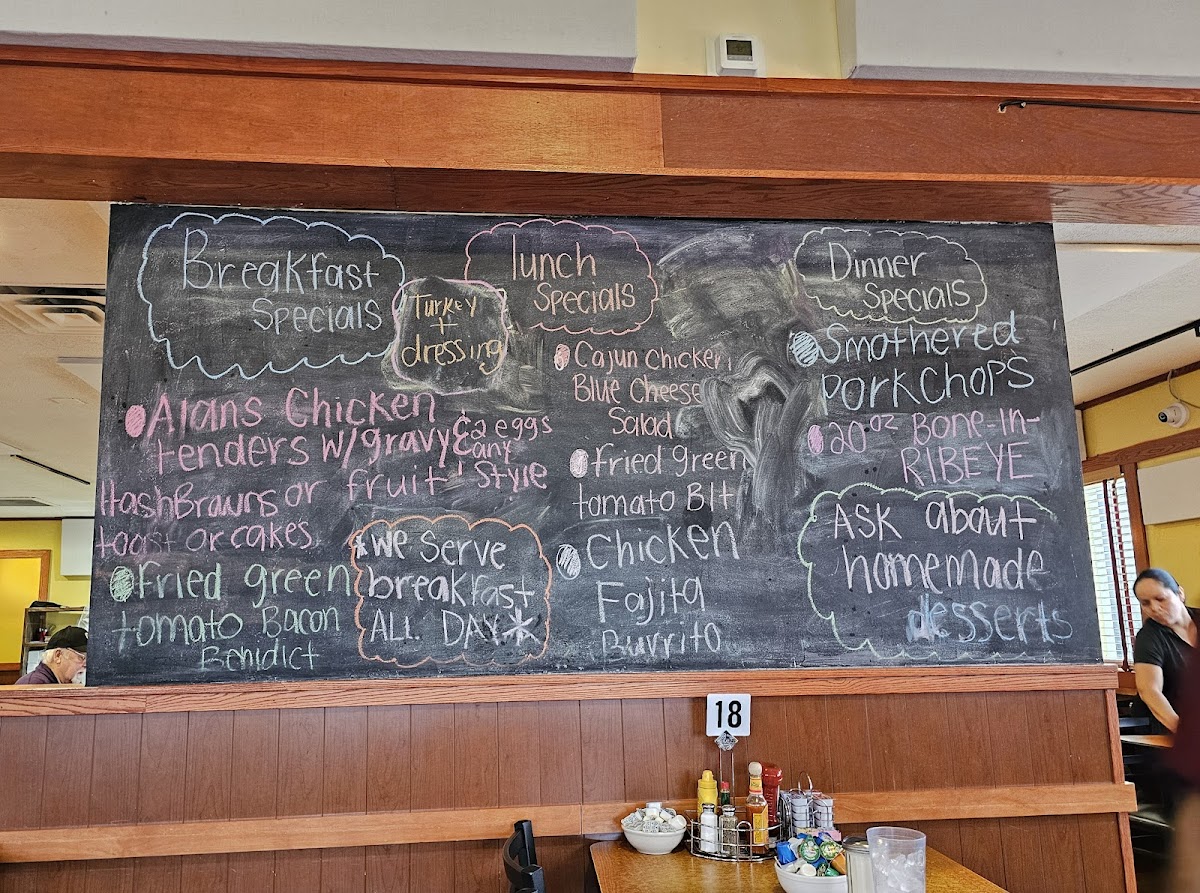 Breakfast
Specials
Turkey
+
dressing
Alans Chicken
tenders w/gravy & 2 eggs
any
Style
HashBrowns or fruit
toast or cakes
fried green
tomato Bacon
Benidict
*We Serve
breakfast
ALL DAY*
lunch
Specials
Cajun chicken
Blue Cheese
Salad
fried green
tomato Blt
Chicken
Fajita
Burrito
Dinner
Specials
Smothered
PORKCHOPS
20oz Bone-In-
RIBEYE
ASK about
homemade
desserts
18